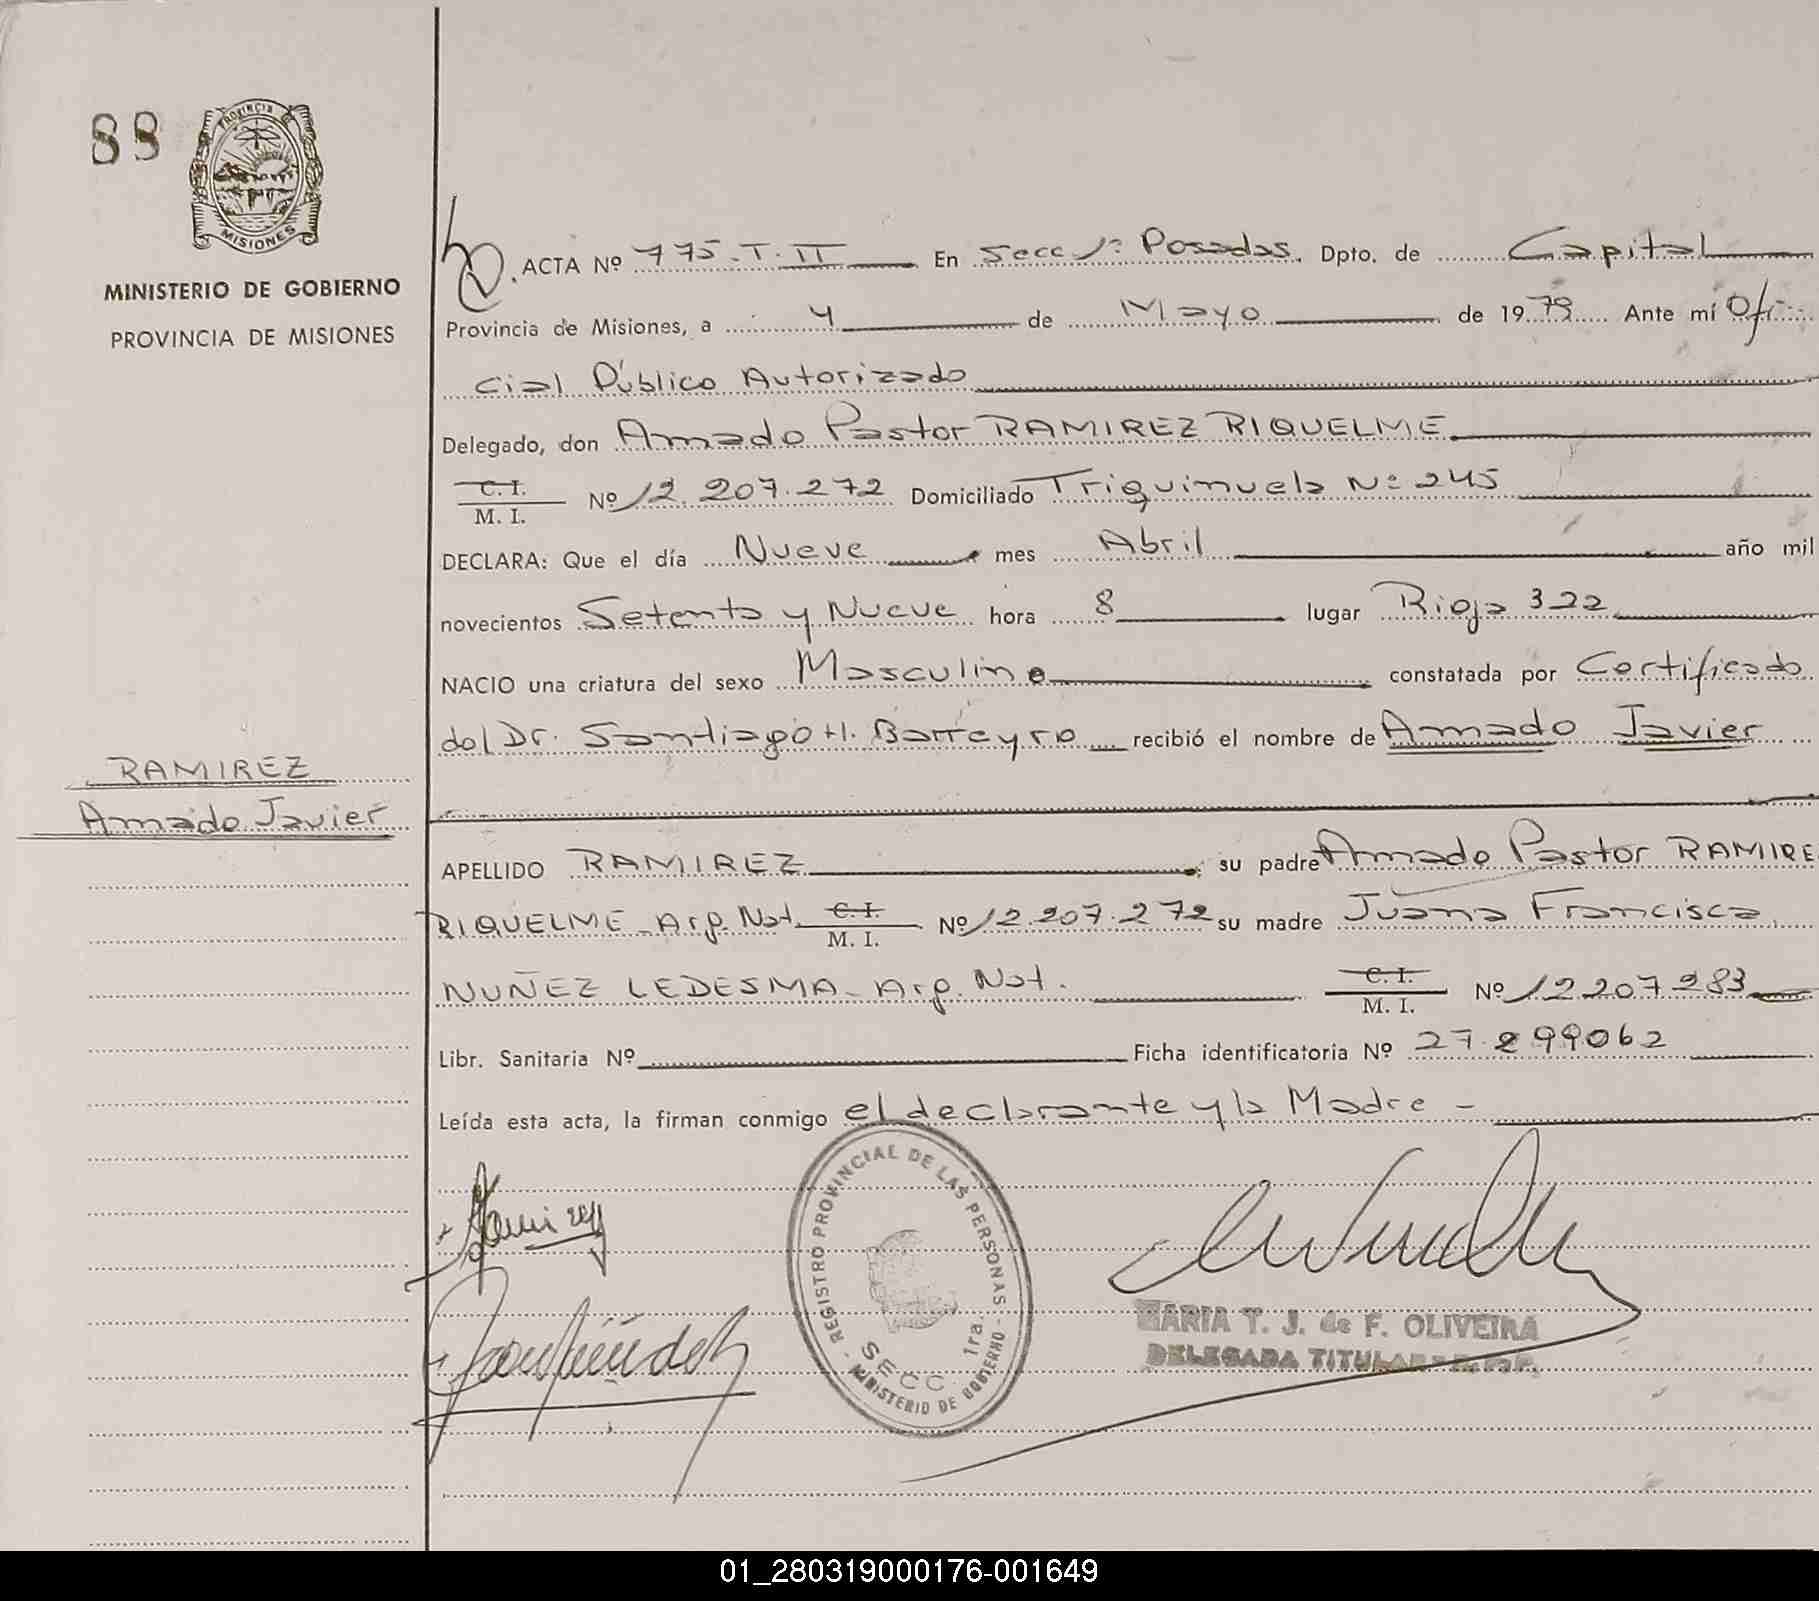 88
PROVINCIA DE
MISIONES
MINISTERIO DE GOBIERNO
PROVINCIA DE MISIONES
RAMIREZ
Amado Javier
ACTA Nº 775. T. II En Secc 1ª Posadas. Dpto. de Capital
Provincia de Misiones, a 4 de Mayo de 1979 Ante mí Ofi-
cial Público Autorizado
Delegado, don Amado Pastor RAMIREZ RIQUELME
C. I.
M. I. Nº 12.207.272 Domiciliado Triquinuela Nº 245
DECLARA: Que el día Nueve mes Abril año mil
novecientos Setenta y Nueve hora 8 lugar Rioja 322
NACIO una criatura del sexo Masculino constatada por Certificado
del Dr. Santiago H. Barreyro recibió el nombre de Amado Javier
APELLIDO RAMIREZ su padre Amado Pastor RAMIRE
RIQUELME - Arg. Nat. C. I.
M. I. Nº 12.207.272 su madre Juana Francisca
NUÑEZ LEDESMA - Arg. Nat. C. I.
M. I. Nº 12207283
Libr. Sanitaria Nº Ficha identificatoria Nº 27.299062
Leída esta acta, la firman conmigo el declarante y la Madre -
REGISTRO PROVINCIAL DE LAS PERSONAS - MINISTERIO DE GOBIERNO -
SECC. 1ra.
MARIA T. J. de F. OLIVEIRA
DELEGADA TITULAR
01_280319000176-001649